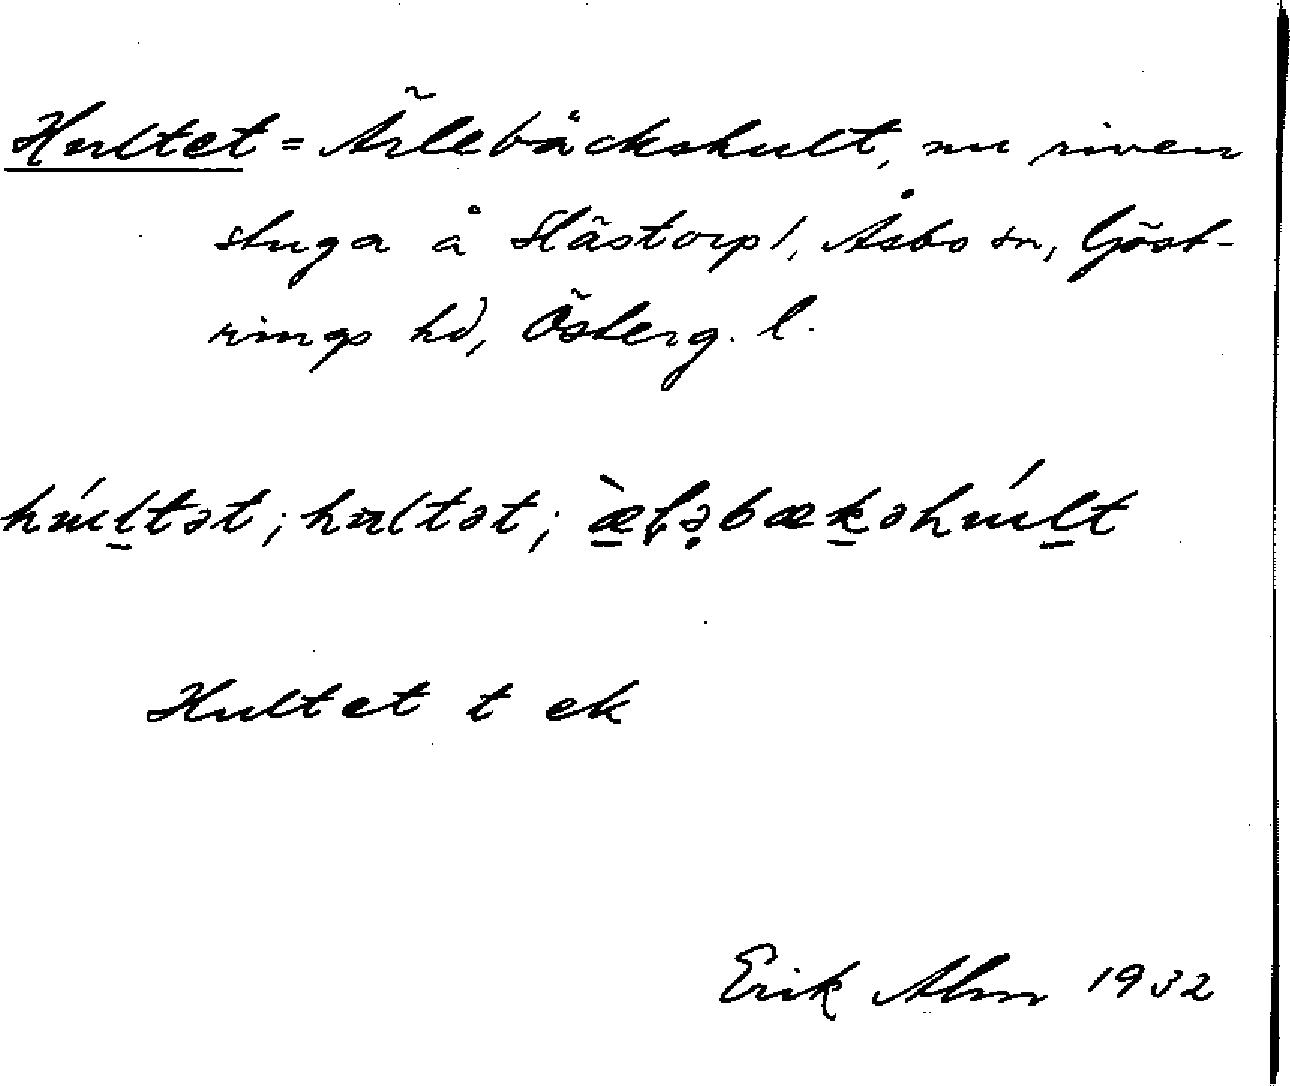 Hultet = Ärlebäckshult, nu riven
stuga å Hästorp /, Åsbo sn, Göst-
rings hd, Österg. l.
húltət; hultət; æ̀ləbækshúlt
Hultet t ek
Erik Alm 1932